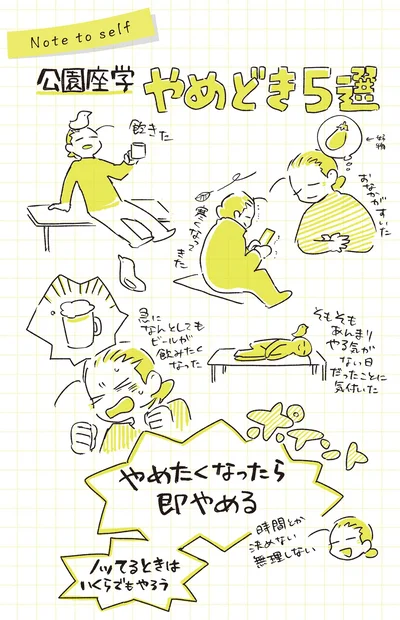 Note to self
公園座学 やめどき5選
飽きた
←好物
おなかがすいた
寒くなってきた
急に
なんとしても
ビールが
飲みたく
なった
そもそも
あんまり
やる気が
ない日
だったことに
気付いた
ポイント
やめたくなったら
即やめる
時間とか
決めない
無理しない
ノッてるときは
いくらでもやろう